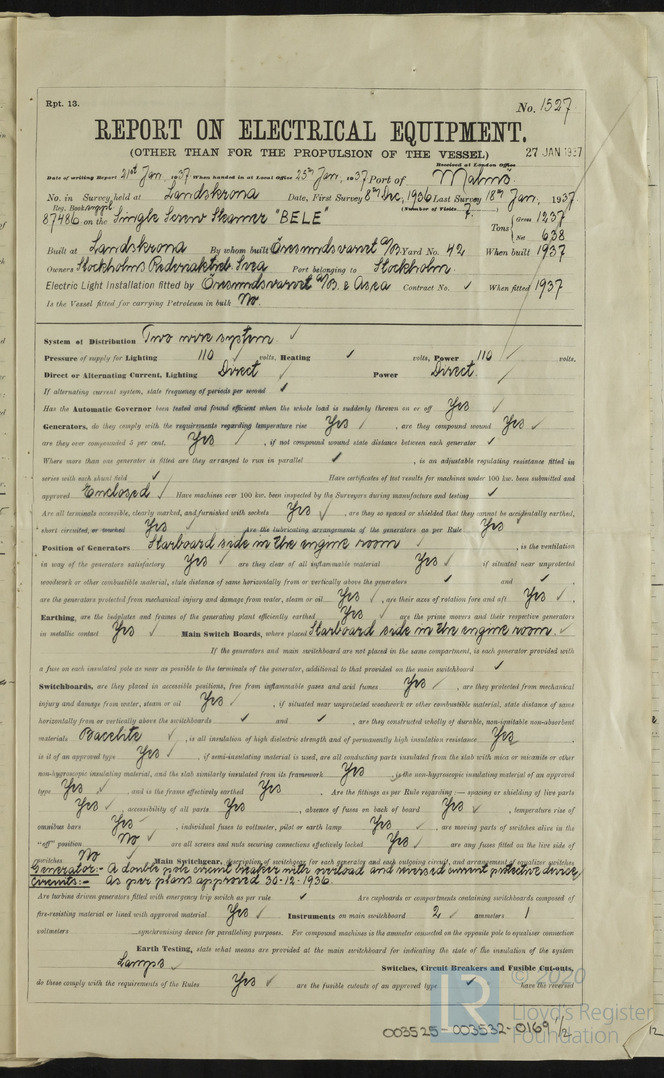 Rpt. 13.
No. 1527
REPORT ON ELECTRICAL EQUIPMENT.
(OTHER THAN FOR THE PROPULSION OF THE VESSEL)
27 JAN 1937
Received at London Office
Date of writing Report 21st Jan, 1937 When handed in at Local Office 25th Jan, 1937 Port of Malmö
No. in Survey held at Landskrona Date, First Survey 8th Dec, 1936 Last Survey 18th Jan, 1937
Reg. Book. suppt (Number of Visits 7.)
87486 on the Single Screw Steamer "BELE" Tons { Gross 1237
Net 638
Built at Landskrona By whom built Öresundsvarvet A/B. Yard No. 42 When built 1937
Owners Stockholms Rederiaktieb. Svea Port belonging to Stockholm
Electric Light Installation fitted by Öresundsvarvet A/B. & Asea Contract No. ✓ When fitted 1937
Is the Vessel fitted for carrying Petroleum in bulk No.
System of Distribution Two wire system. ✓
Pressure of supply for Lighting 110 ✓ volts, Heating ✓ volts, Power 110 ✓ volts.
Direct or Alternating Current, Lighting Direct ✓ Power Direct. ✓
If alternating current system, state frequency of periods per second ✓
Has the Automatic Governor been tested and found efficient when the whole load is suddenly thrown on or off Yes ✓
Generators, do they comply with the requirements regarding temperature rise Yes ✓, are they compound wound Yes ✓
are they over compounded 5 per cent. Yes ✓, if not compound wound state distance between each generator ✓
Where more than one generator is fitted are they arranged to run in parallel ✓, is an adjustable regulating resistance fitted in
series with each shunt field ✓ Have certificates of test results for machines under 100 kw. been submitted and
approved Enclosed ✓ Have machines over 100 kw. been inspected by the Surveyors during manufacture and testing ✓
Are all terminals accessible, clearly marked, and furnished with sockets Yes ✓, are they so spaced or shielded that they cannot be accidentally earthed,
short circuited, or touched Yes ✓ Are the lubricating arrangements of the generators as per Rule Yes ✓
Position of Generators Starboard side in the engine room ✓, is the ventilation
in way of the generators satisfactory Yes ✓ are they clear of all inflammable material Yes ✓ if situated near unprotected
woodwork or other combustible material, state distance of same horizontally from or vertically above the generators ✓ and ✓,
are the generators protected from mechanical injury and damage from water, steam or oil Yes ✓, are their axes of rotation fore and aft Yes ✓,
Earthing, are the bedplates and frames of the generating plant efficiently earthed Yes ✓ are the prime movers and their respective generators
in metallic contact Yes ✓ Main Switch Boards, where placed Starboard side in the engine room. ✓
If the generators and main switchboard are not placed in the same compartment, is each generator provided with
a fuse on each insulated pole as near as possible to the terminals of the generator, additional to that provided on the main switchboard ✓
Switchboards, are they placed in accessible positions, free from inflammable gases and acid fumes Yes ✓, are they protected from mechanical
injury and damage from water, steam or oil Yes ✓, if situated near unprotected woodwork or other combustible material, state distance of same
horizontally from or vertically above the switchboards ✓ and ✓, are they constructed wholly of durable, non-ignitable non-absorbent
materials Bacelite ✓, is all insulation of high dielectric strength and of permanently high insulation resistance Yes,
is it of an approved type Yes ✓, if semi-insulating material is used, are all conducting parts insulated from the slab with mica or micanite or other
non-hygroscopic insulating material, and the slab similarly insulated from its framework Yes ✓, is the non-hygroscopic insulating material of an approved
type Yes ✓, and is the frame effectively earthed Yes ✓. Are the fittings as per Rule regarding:— spacing or shielding of live parts
Yes ✓, accessibility of all parts Yes ✓, absence of fuses on back of board Yes ✓, temperature rise of
omnibus bars Yes ✓, individual fuses to voltmeter, pilot or earth lamp Yes ✓, are moving parts of switches alive in the
"off" position No ✓ are all screws and nuts securing connections effectively locked Yes ✓ are any fuses fitted on the live side of
switches No ✓ Main Switchgear, description of switchgear for each generator and each outgoing circuit, and arrangement of equalizer switches
Generator:- A double pole circuit breaker with overload and reversed current protective device,
Circuits:- As per plans approved 30-12-1936.
Are turbine driven generators fitted with emergency trip switch as per rule ✓ Are cupboards or compartments containing switchboards composed of
fire-resisting material or lined with approved material Yes ✓ Instruments on main switchboard 2 ✓ ammeters 1
voltmeters synchronising device for paralleling purposes. For compound machines is the ammeter connected on the opposite pole to equaliser connection
Earth Testing, state what means are provided at the main switchboard for indicating the state of the insulation of the system
Lamps ✓ Switches, Circuit Breakers and Fusible Cut-outs,
do these comply with the requirements of the Rules Yes ✓ are the fusible cutouts of an approved type ✓ have the reversed
© 2020
LR
Lloyd's Register
Foundation
003525-003532-0169 1/2